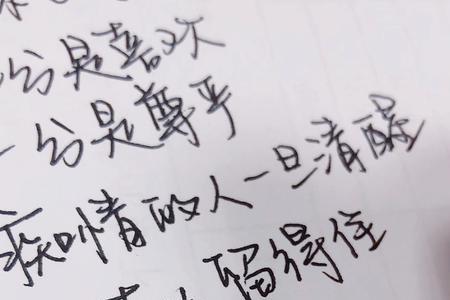 分是喜欢
一分是尊乎
痴情的人一旦清醒
留得住